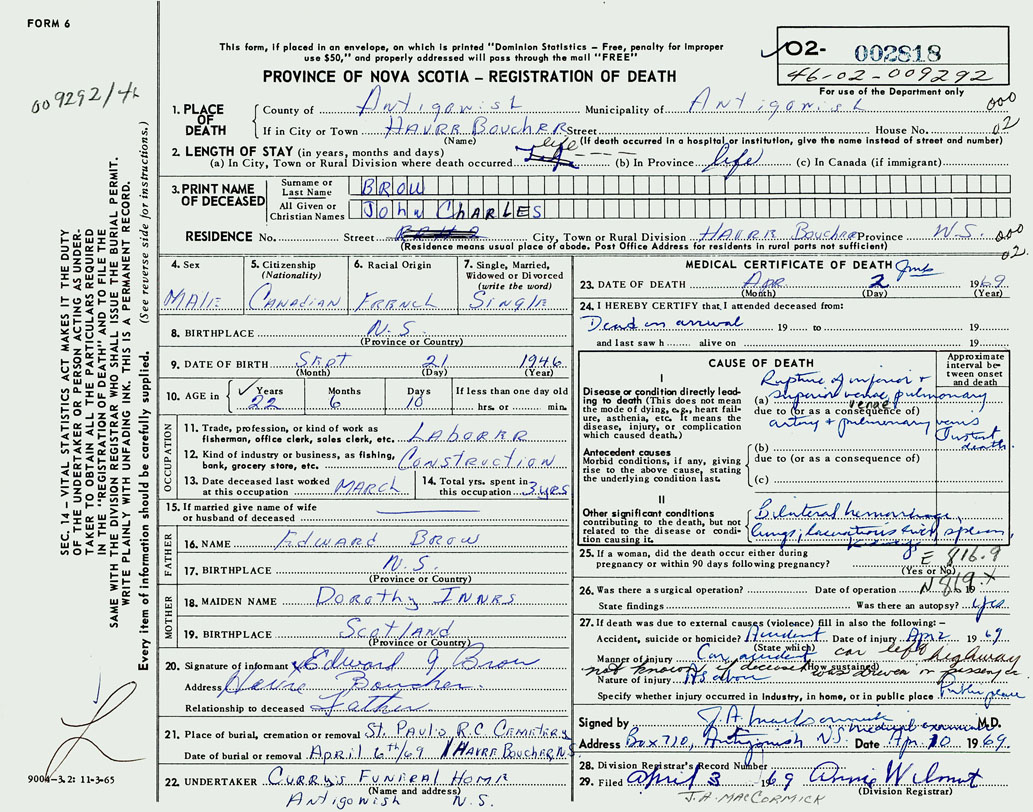 FORM 6
This form, if placed in an envelope, on which is printed "Dominion Statistics – Free, penalty for improper
use $50," and properly addressed will pass through the mail "FREE"
PROVINCE OF NOVA SCOTIA – REGISTRATION OF DEATH
02- 002818
46-02-009292
For use of the Department only
009292/46
1. PLACE OF DEATH
County of Antigonish Municipality of Antigonish 000
If in City or Town HAVRE BOUCHER Street House No. 02
(Name) (If death occurred in a hospital or institution, give the name instead of street and number)
2. LENGTH OF STAY (in years, months and days)
(a) In City, Town or Rural Division where death occurred life (b) In Province life (c) In Canada (if immigrant)
3. PRINT NAME OF DECEASED
Surname or Last Name BROW
All Given or Christian Names John CHARLES
RESIDENCE No. Street City, Town or Rural Division HAVRE BOUCHER Province N.S. 000
(Residence means usual place of abode. Post Office Address for residents in rural parts not sufficient) 02.
4. Sex MALE
5. Citizenship (Nationality) CANADIAN
6. Racial Origin FRENCH
7. Single, Married, Widowed or Divorced (write the word) SINGLE
8. BIRTHPLACE N.S.
(Province or Country)
9. DATE OF BIRTH SEPT 21 1946
(Month) (Day) (Year)
10. AGE in Years 22 Months 6 Days 10 If less than one day old hrs. or min.
OCCUPATION
11. Trade, profession, or kind of work as fisherman, office clerk, sales clerk, etc. LABORER
12. Kind of industry or business, as fishing, bank, grocery store, etc. CONSTRUCTION
13. Date deceased last worked at this occupation MARCH
14. Total yrs. spent in this occupation 3 yrs
15. If married give name of wife or husband of deceased
FATHER
16. NAME EDWARD BROW
17. BIRTHPLACE N.S.
(Province or Country)
MOTHER
18. MAIDEN NAME Dorothy INNES
19. BIRTHPLACE SCOTLAND
(Province or Country)
20. Signature of informant Edward J. Brow
Address Havre Boucher
Relationship to deceased Father
21. Place of burial, cremation or removal St. Paul's R.C. CEMETERY
Date of burial or removal APRIL 6th/69 HAVRE BOUCHER N.S
22. UNDERTAKER CURRY'S FUNERAL HOME
(Name and address)
Antigonish N.S.
MEDICAL CERTIFICATE OF DEATH
23. DATE OF DEATH Apr 2 1969
(Month) (Day) (Year)
24. I HEREBY CERTIFY that I attended deceased from:
Dead on arrival 19 to 19
and last saw h alive on 19
CAUSE OF DEATH
Approximate interval between onset and death
I
Disease or condition directly leading to death (This does not mean the mode of dying, e.g., heart failure, asthenia, etc. It means the disease, injury, or complication which caused death.)
(a) Rupture of inferior + superior venae pulmonary
due to (or as a consequence of)
artery + pulmonary veins
Instant death
Antecedent causes
Morbid conditions, if any, giving rise to the above cause, stating the underlying condition last.
(b)
due to (or as a consequence of)
(c)
II
Other significant conditions contributing to the death, but not related to the disease or condition causing it.
Bilateral hemorrhage
lungs, lacerations liver, spleen,
25. If a woman, did the death occur either during pregnancy or within 90 days following pregnancy?
(Yes or No)
E 816.9
N 869.X
26. Was there a surgical operation? Date of operation 19
State findings Was there an autopsy? yes
27. If death was due to external causes (violence) fill in also the following: –
Accident, suicide or homicide? Accident Date of injury Apr 2 1969
(State which)
Manner of injury Car accident car left highway
(How sustained)
not known if deceased was driver or passenger
Nature of injury As above
Specify whether injury occurred in industry, in home, or in public place Public place
Signed by J.A. MacCormick medical examiner M.D.
Address Box 710, Antigonish NS Date Apr. 10 1969.
28. Division Registrar's Record Number
29. Filed April 3 1969 Annie Wilmot
(Division Registrar)
J.A. MACCORMICK
SEC. 14 – VITAL STATISTICS ACT MAKES IT THE DUTY
OF THE UNDERTAKER OR PERSON ACTING AS UNDER-
TAKER TO OBTAIN ALL THE PARTICULARS REQUIRED
IN THE "REGISTRATION OF DEATH" AND TO FILE THE
SAME WITH THE DIVISION REGISTRAR WHO SHALL ISSUE THE BURIAL PERMIT.
WRITE PLAINLY WITH UNFADING INK. THIS IS A PERMANENT RECORD.
Every item of information should be carefully supplied. (See reverse side for instructions.)
9004-3.2: 11-3-65